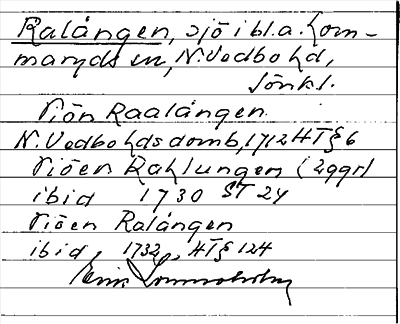 Ralången, sjö i bl.a. Kom-
maryds sn, N. Vedbo hd,
Jönk l.
Siön Raalången
N. Vedbo hds domb, 1712 HT § 6
Siöen Rahlungen (2 ggr)
ibid 1730 ST 24
Siöen Ralången
ibid, 1732, HT § 124